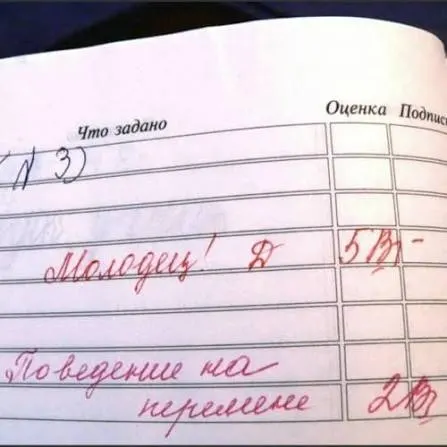 Что задано Оценка Подпись
(N 3)
Молодец! Д 5
Поведение на
перемене 2